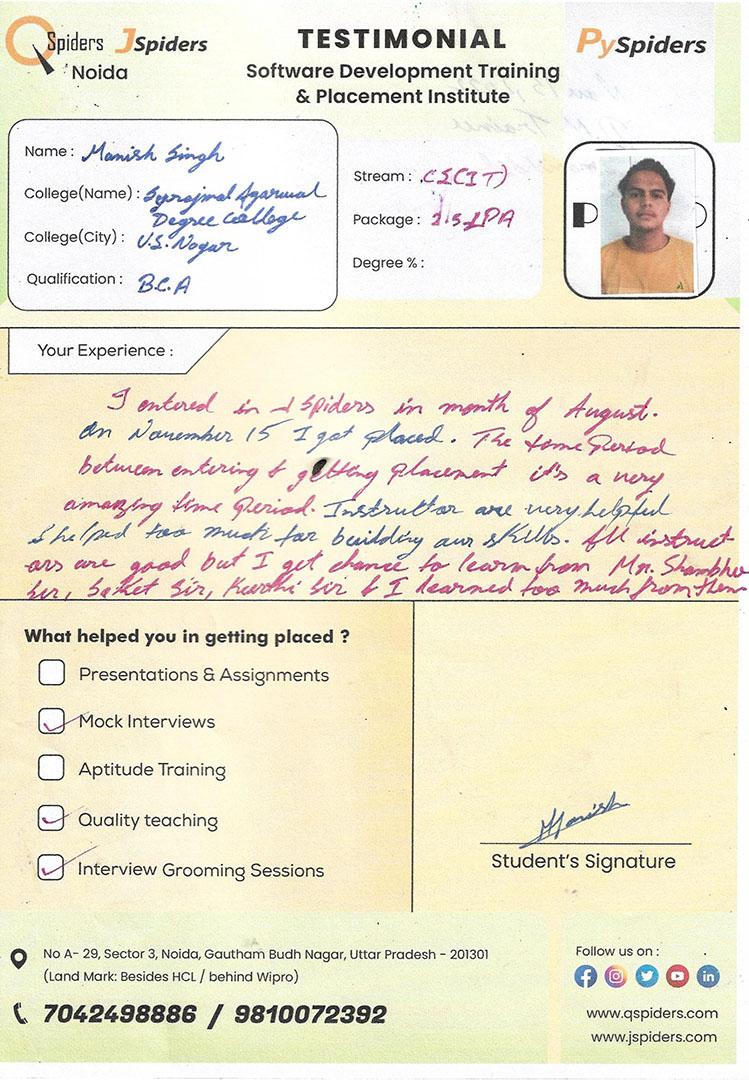 QSpiders JSpiders
Noida
TESTIMONIAL
Software Development Training
& Placement Institute
PySpiders
Name : Manish Singh
College(Name) : Surajmal Agarwal
Degree College
College(City) : U.S. Nagar
Qualification : B.C.A
Stream : CS(IT)
Package : LPA
Degree % :
Your Experience :
I entered in J Spiders in month of August.
On November 15 I got placed. The time Period
between entering & getting placement it's a very
amazing time Period. Instructor are very helpful
& helped too much for building our skills. All instruct
ors are good but I get chance to learn from Mr. Shambhu
Sir, Saket Sir, Sir & I learned too much from them
What helped you in getting placed ?
Presentations & Assignments
Mock Interviews
Aptitude Training
Quality teaching
Interview Grooming Sessions
Manish
Student's Signature
No A- 29, Sector 3, Noida, Gautham Budh Nagar, Uttar Pradesh - 201301
(Land Mark: Besides HCL / behind Wipro)
7042498886 / 9810072392
Follow us on :
www.qspiders.com
www.jspiders.com